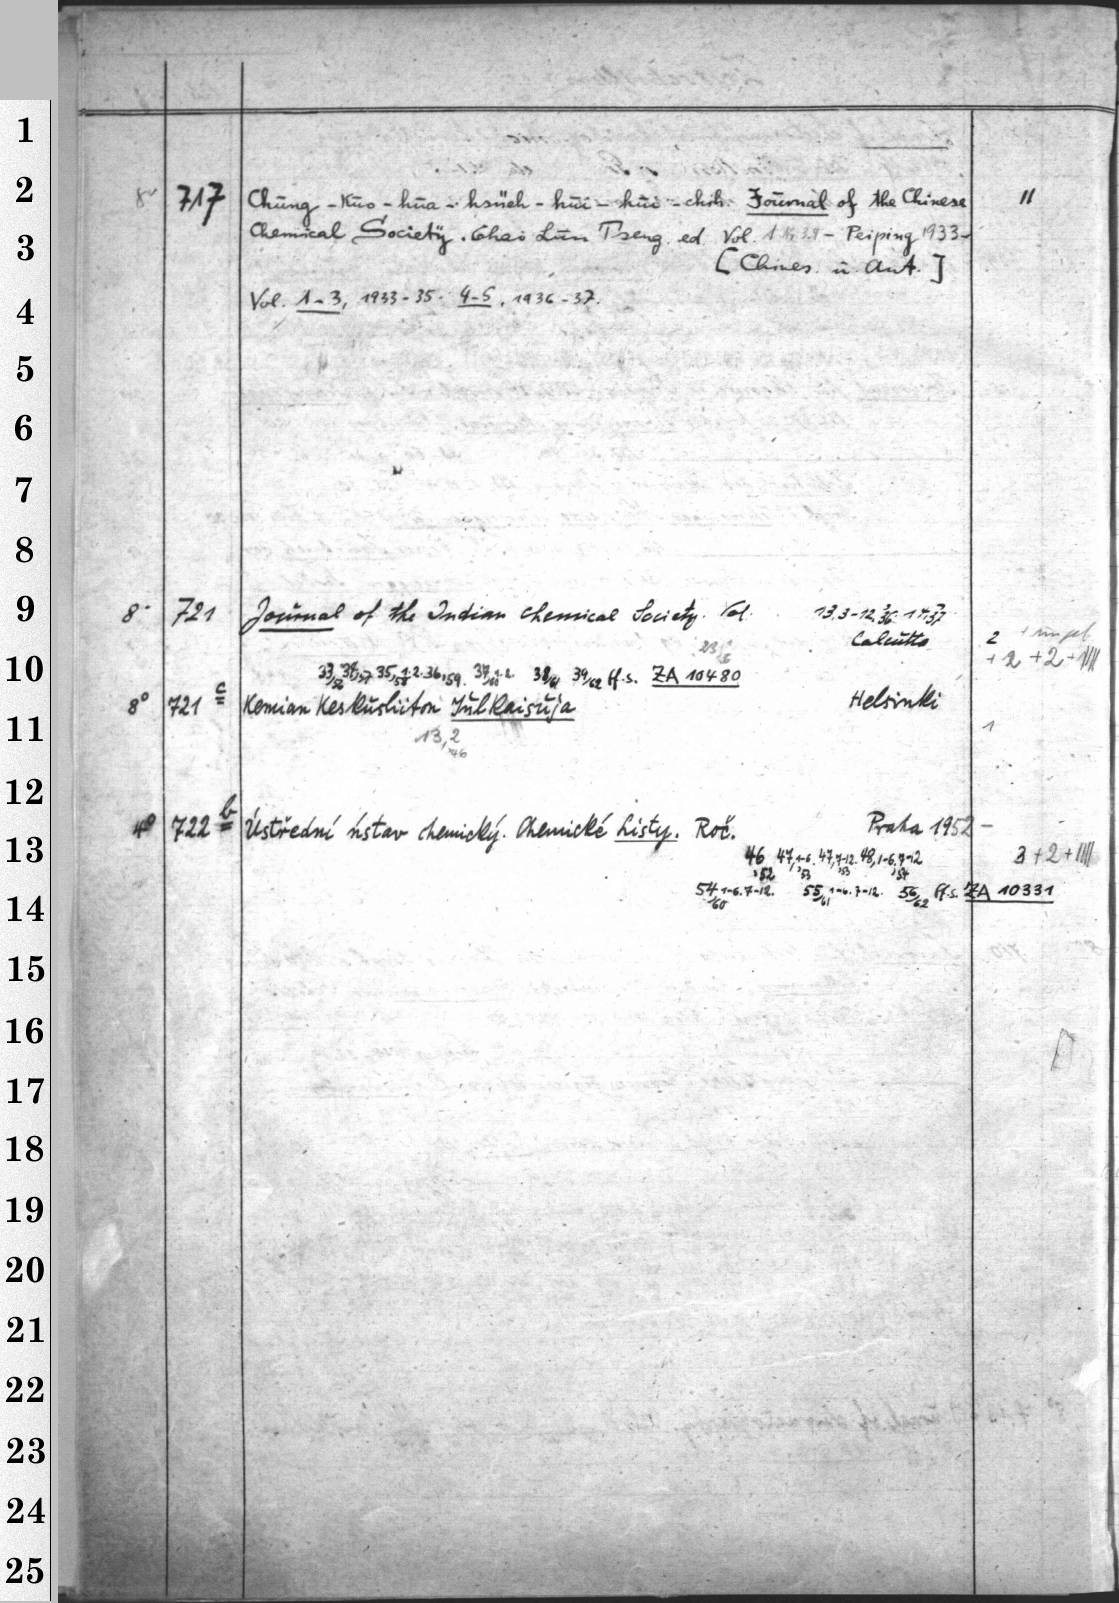 1
2
8° 717 Chung-Kuo-hua-hsüeh-hui-hui-chih. Journal of the Chinese II
3
Chemical Society. Chao Lun Tseng ed. Vol. 1 - Peiping 1933-
[Chines. u. Ant.]
4
Vol. 1-3, 1933-35. 4-5, 1936-37.
5
6
7
8
9
8° 721 Journal of the Indian chemical Society. Vol. 13,3-12,36. 14,37
Calcutta 2
+2 +2 +IIII
10
33/56 35,1-2. 36,59. 37,1-2. 38/61 39/62 ff. s. ZA 10480
8° 721 c Kemian Keskusliiton Julkaisuja Helsinki
11
1
13,2
'46
12
4° 722 b Ústřední ústav chemický. Chemické Listy. Roč. Praha 1952-
13
46 '52 47,1-6. '53 47,7-12. '53 48,1-6.7-12 '54 3+2+IIII
14
54/60 1-6.7-12. 55/61 1-6.7-12. 56/62 ff. s. ZA 10331
15
16
17
18
19
20
21
22
23
24
25